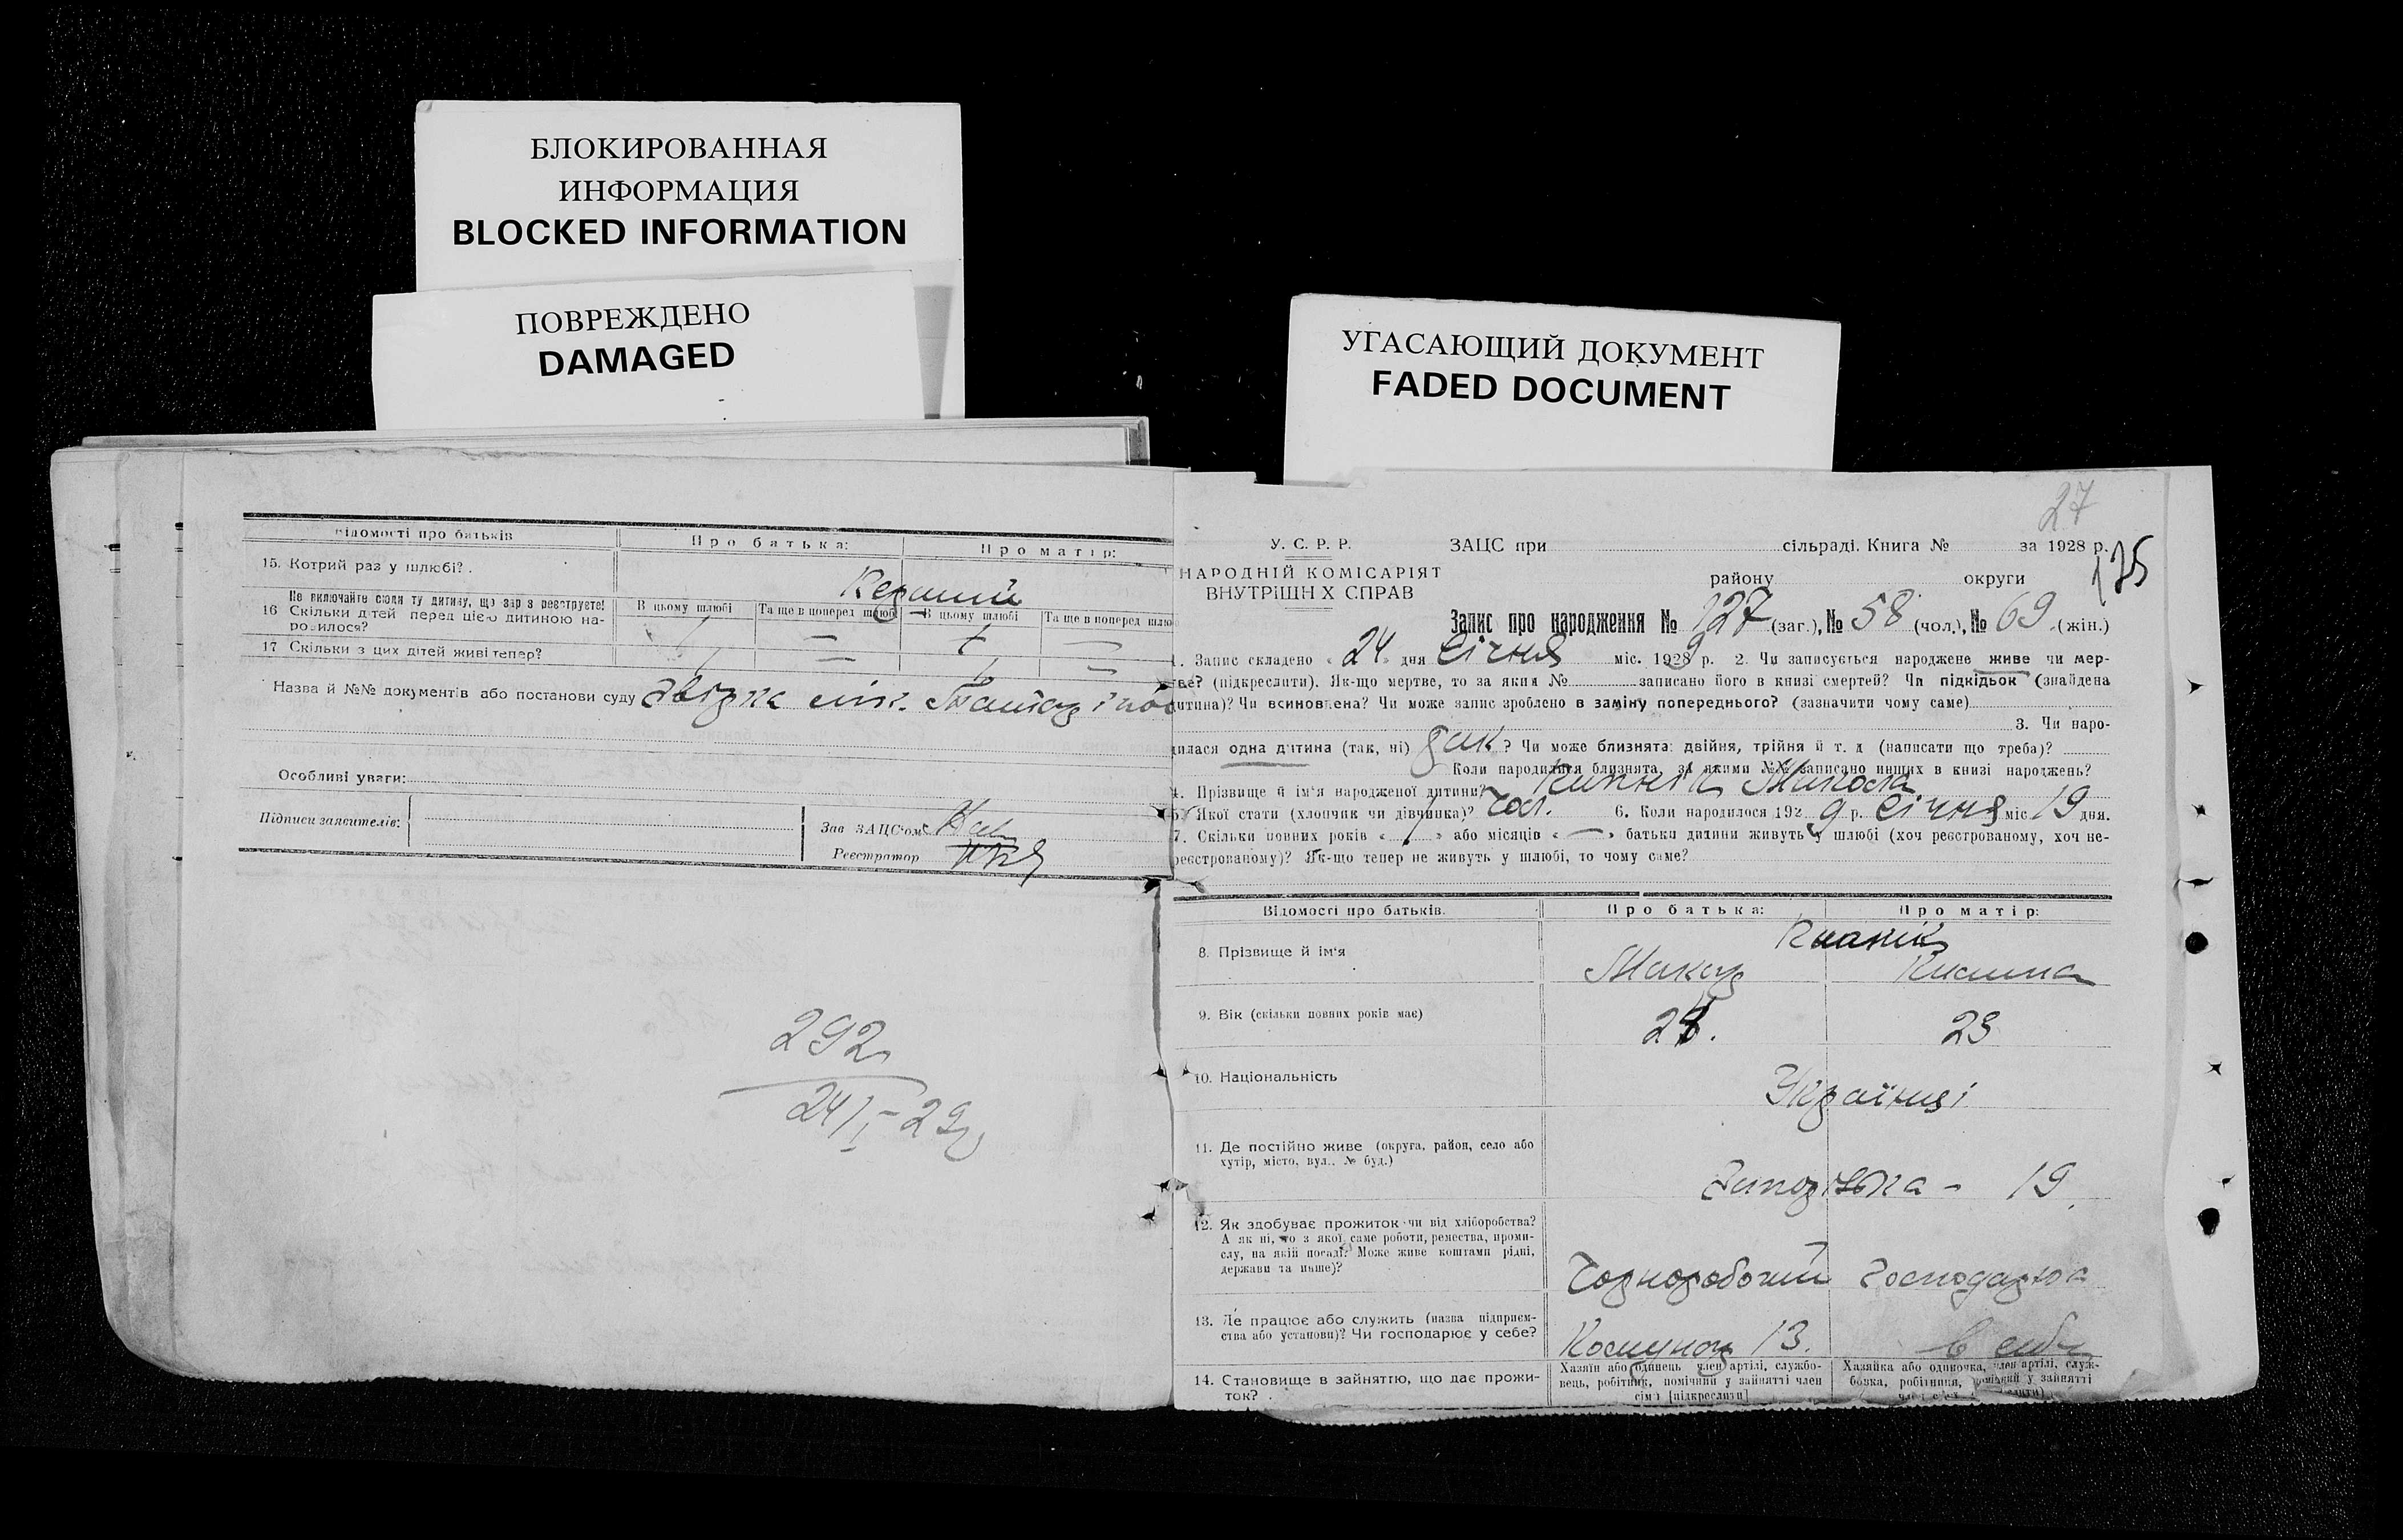 БЛОКИРОВАННАЯ
ИНФОРМАЦИЯ
BLOCKED INFORMATION
ПОВРЕЖДЕНО
DAMAGED
УГАСАЮЩИЙ ДОКУМЕНТ
FADED DOCUMENT
Відомості про батьків
Про батька:
Про матір:
15. Котрий раз у шлюбі?.
Не включайте сюди ту дитину, що зараз реєструєте!
16 Скільки дітей перед цією дитиною народилося?
В цьому шлюбі
Та ще в поперед шлюбі
В цьому шлюбі
Та ще в поперед шлю
1 — 1 —
17 Скільки з цих дітей живі тепер?
1 — 1 —
Назва й №№ документів або постанови суду
Особливі уваги:
Підписи заявителів:
Зав ЗАЦС'ом
Реєстратор
292
24/I-29р
27
125
У. С. Р. Р.
НАРОДНІЙ КОМІСАРІЯТ
ВНУТРІШНІХ СПРАВ
ЗАЦС при сільраді. Книга № за 1928 р.
району округи
Запис про народження № 127 (заг.), № 58 (чол.), № 69 (жін.)
1. Запис складено «24» дня Січня міс. 1929 р. 2. Чи записується народжене живе чи мер-
тве? (підкреслити). Як-що мертве, то за яким № записано його в книзі смертей? Чи підкідьок (знайдена
дитина)? Чи всиновлена? Чи може запис зроблено в заміну попереднього? (зазначити чому саме)
3. Чи наро-
дилася одна дитина (так, ні) так? Чи може близнята: двійня, трійня й т. д (написати що треба)?
Коли народилися близнята, за якими №№ записано инших в книзі народжень?
4. Прізвище й ім'я народженої дитини? Микола
5. Якої стати (хлопчик чи дівчинка)? чол. 6. Коли народилося 1929 р. Січня міс 19 дня.
7. Скільки повних років «1» або місяців «—» батьки дитини живуть у шлюбі (хоч реєстрованому, хоч не-
реєстрованому)? Як-що тепер не живуть у шлюбі, то чому саме?
Відомості про батьків.
Про батька:
Про матір:
8. Прізвище й ім'я
Макар
Килина
9. Вік (скільки повних років має)
24.
23
10. Національність
Українці
11. Де постійно живе (округа, район, село або
хутір, місто, вул., № буд.)
19
12. Як здобуває прожиток чи від хліборобства?
А як ні, то з якої саме роботи, ремества, проми-
слу, на якій посаді? Може живе коштами рідні,
держави та инше)?
Чорноробочий
Господарка
13. Де працює або служить (назва підприєм-
ства або установи)? Чи господарює у себе?
Комунар 13.
в себе
14. Становище в зайняттю, що дає прожи-
ток?
Хазяїн або одинець член артілі, службо-
вець, робітник, помічний у зайнятті член
сім'ї [підкреслити]
Хазяйка або одиночка, член артілі, служ-
бовка, робітниця, помічний у зайнятті